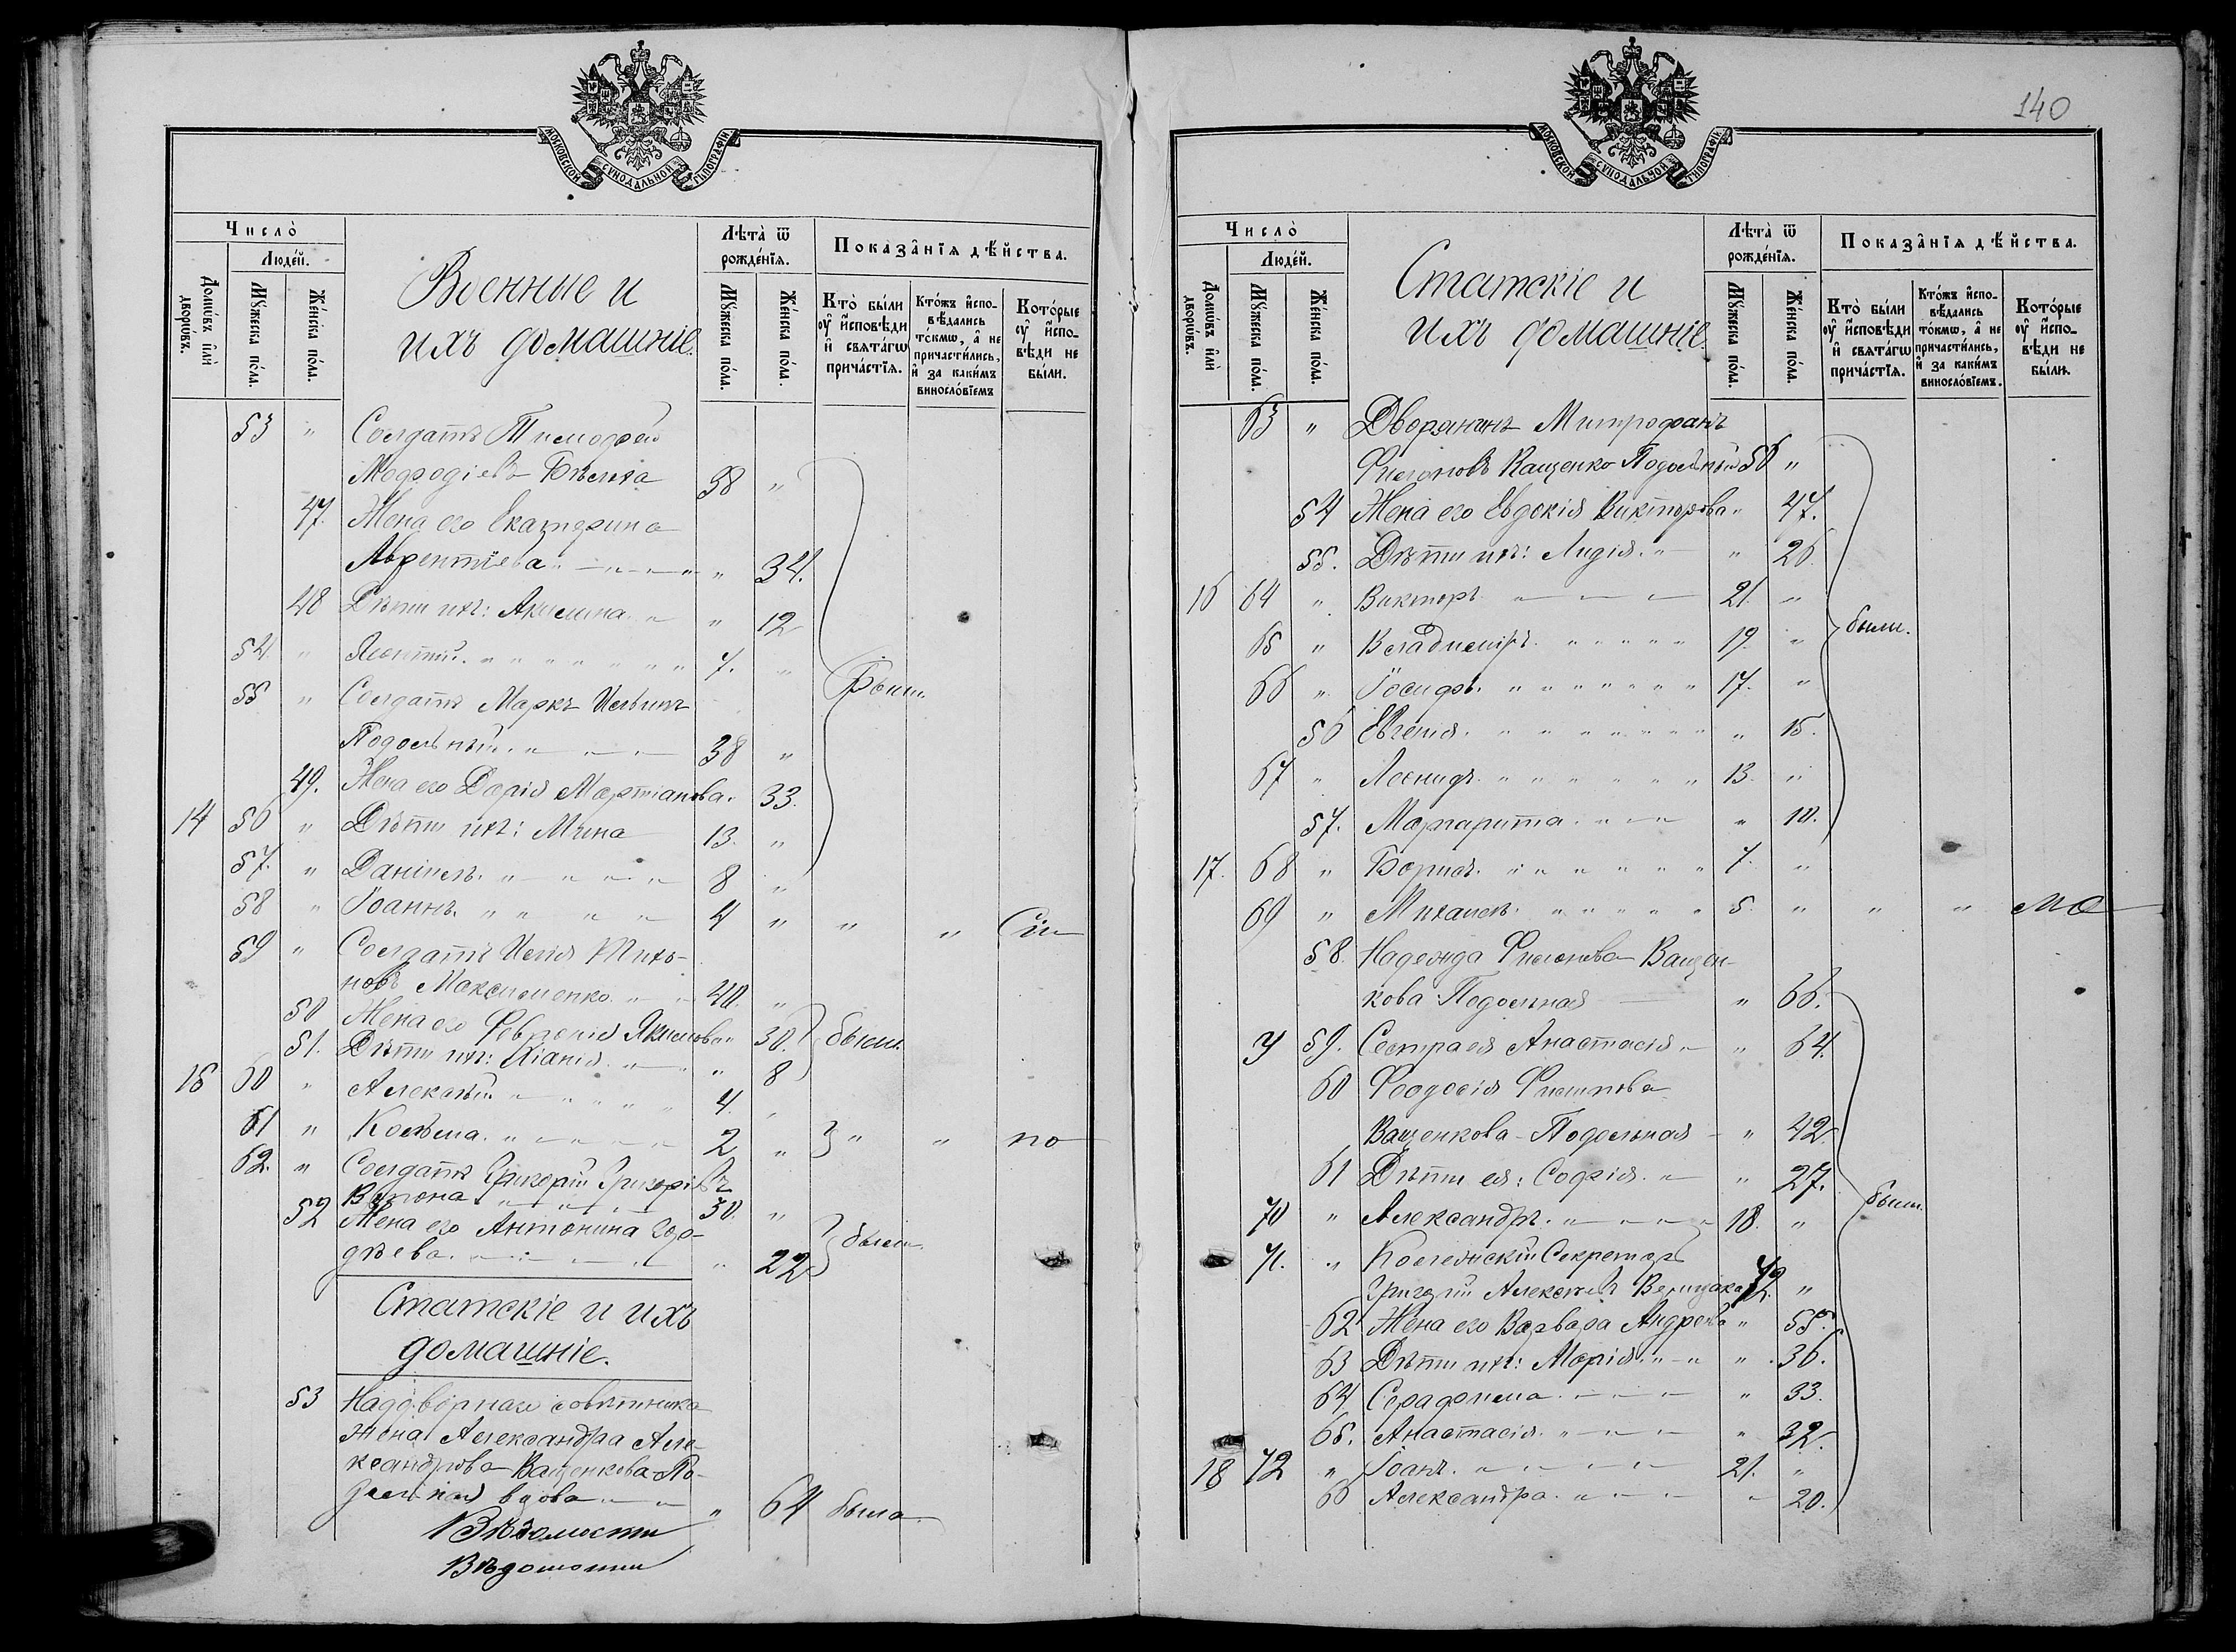 МОСКОВСКОЙ СѴНОДАЛЬНОЙ ТѴПОГРАФІИ
Число̀
Людéй.
Домѡ́въ и҆лѝ дворѡ́въ.
Мꙋ́жеска по́ла.
Же́нска по́ла.
Военные и
ихъ домашніе.
Лѣта̀ ѿ рожде́нїѧ.
Мꙋ́жеска по́ла.
Же́нска по́ла.
Показа̂нїѧ дѣ́йства.
Кто̀ бы́ли ᲂу҆ и҆сповѣди и҆ свѧта́гѡ прича́стїѧ.
Кто́жъ и҆спо-вѣдались то́кмѡ, а҆ не причасти́лись, и҆ за каки́мъ винослóвїемъ
Кото́рые ᲂу҆ и҆спо-вѣди не бы́ли.
53 " Солдатъ Тимофей
Мефодіевъ Бѣлека 38 "
47. Жена его Екатерина
Лаврентіева " 34.
48 Дѣти ихъ: Акилина " 12
54. " Леонтій 7. "
55 " Солдатъ Маркъ Ильинъ
Подольный 38 "
были
49. Жена его Дарія Мартианова. 33.
14 56 " Дѣти ихъ: Мина 13. "
57. " Даніилъ 8 "
58 " Іоаннъ 4 " " " Сіи
59 " Солдатъ Илія Тихо-
новъ Максименко 40. "
50 Жена его Февронія Якимова 30. были
51. Дѣти ихъ: Ксанія " 8
15 60 " Алексѣй 4. "
61 " Косьма 2 " " " по
62. " Солдатъ Григорій Григоріевъ
Ворона 30. "
52 Жена его Антонина Гор-
дѣева " 22 были
Статскіе и ихъ
домашніе.
53 Надворнаго совѣтника
жена Александра Але-
ксандрова Ващенкова-По-
дольная вдова " 64 была
Вѣдомости
Вѣдомости
140
МОСКОВСКОЙ СѴНОДАЛЬНОЙ ТѴПОГРАФІИ
Число̀
Людéй.
Домѡ́въ и҆лѝ дворѡ́въ.
Мꙋ́жеска по́ла.
Же́нска по́ла.
Статскіе и
ихъ домашніе.
Лѣта̀ ѿ рожде́нїѧ.
Мꙋ́жеска по́ла.
Же́нска по́ла.
Показа̂нїѧ дѣ́йства.
Кто̀ бы́ли ᲂу҆ и҆сповѣди и҆ свѧта́гѡ прича́стїѧ.
Кто́жъ и҆спо-вѣдались то́кмѡ, а҆ не причасти́лись, и҆ за каки́мъ винослóвїемъ.
Кото́рые ᲂу҆ и҆спо-вѣди не бы́ли.
63 " Дворянинъ Митрофанъ
Филоновъ Ващенко Подольный 56 "
54 Жена его Евдокія Викторова " 47.
55. Дѣти ихъ: Лидія " 26
16 64 " Викторъ 21. "
65 " Владиміръ 19. "
были.
66 " Іосифъ 17. "
56 Евгенія " 15.
67 " Леонидъ 13. "
57. Маргарита " 10.
17. 68 " Борисъ 7. "
69 " Михаилъ 5. " " " мо
58. Надежда Филонова Ващен-
кова Подольная " 66.
У 59. Сестра ея Анастасія " 64.
60 Феодосія Филипова
Ващенкова-Подольная " 42.
61 Дѣти ея: Софія " 27.
70 " Александръ 18. "
были
71. " Коллежскій Секретарь
Григорій Алексѣевъ 72. "
62 Жена его Варвара Андреева " 55.
63 Дѣти ихъ: Марія " 36.
64 Серафима " 33.
65. Анастасія " 32.
18 72 " Іоанъ 21. "
66 Александра " 20.